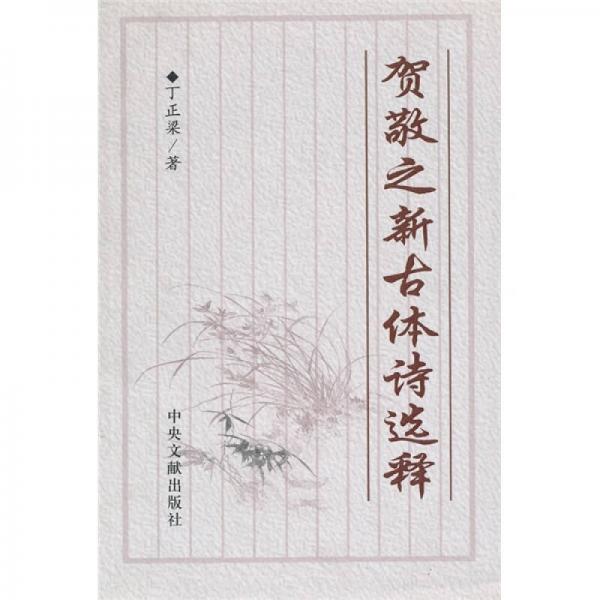 贺敬之新古体诗选释
◆丁正梁/著
中央文献出版社